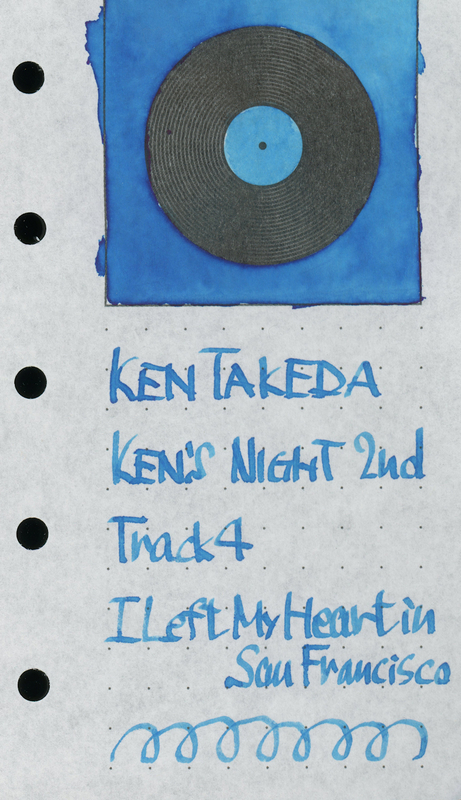 KEN TAKEDA
KEN'S NIGHT 2nd
Track 4
I Left My Heart in
San Francisco